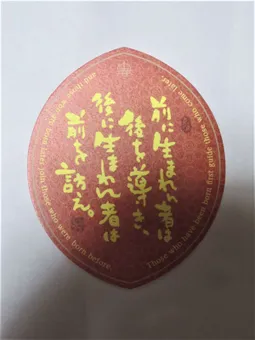 前に生まれん者は
後を導き、
後に生まれん者は
前を訪え。
Those who have been born first guide those who come later,
and those who are born later join those who were born before.